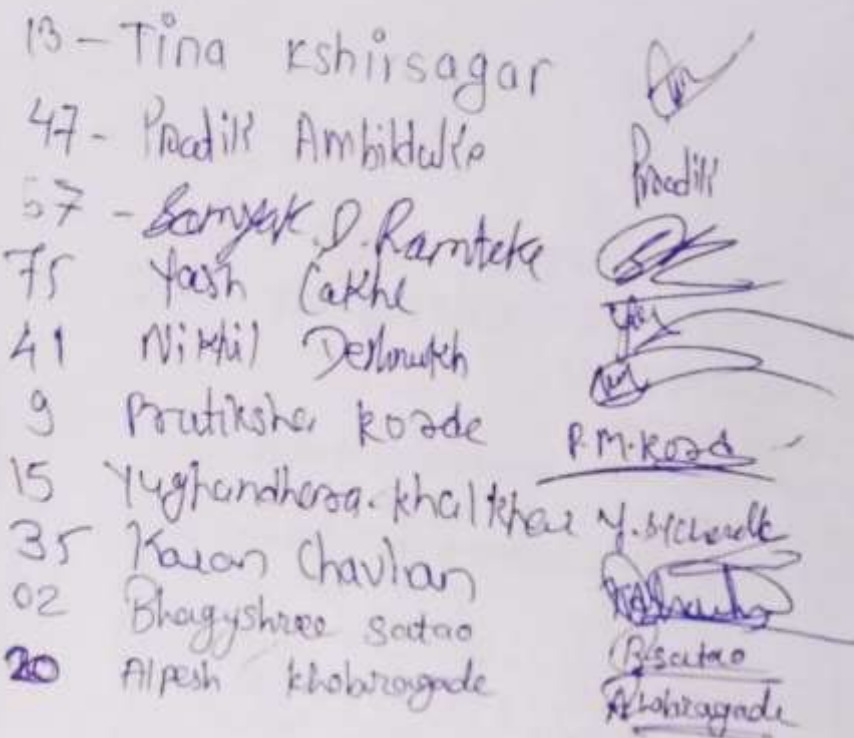 13 - Tina Kshirsagar
47 - Pradik Ambilduke Pradik
57 - Samyak. D. Ramteke
75 Yash Cakhe
41 Nikhil Deshmukh
9 Pratiksha Korde P.M.Kord
15 Yughandhara. Khalkhar
35 Karan Chavhan
02 Bhagyshree Satao B.satao
20 Alpesh Khobragade AKhobragade